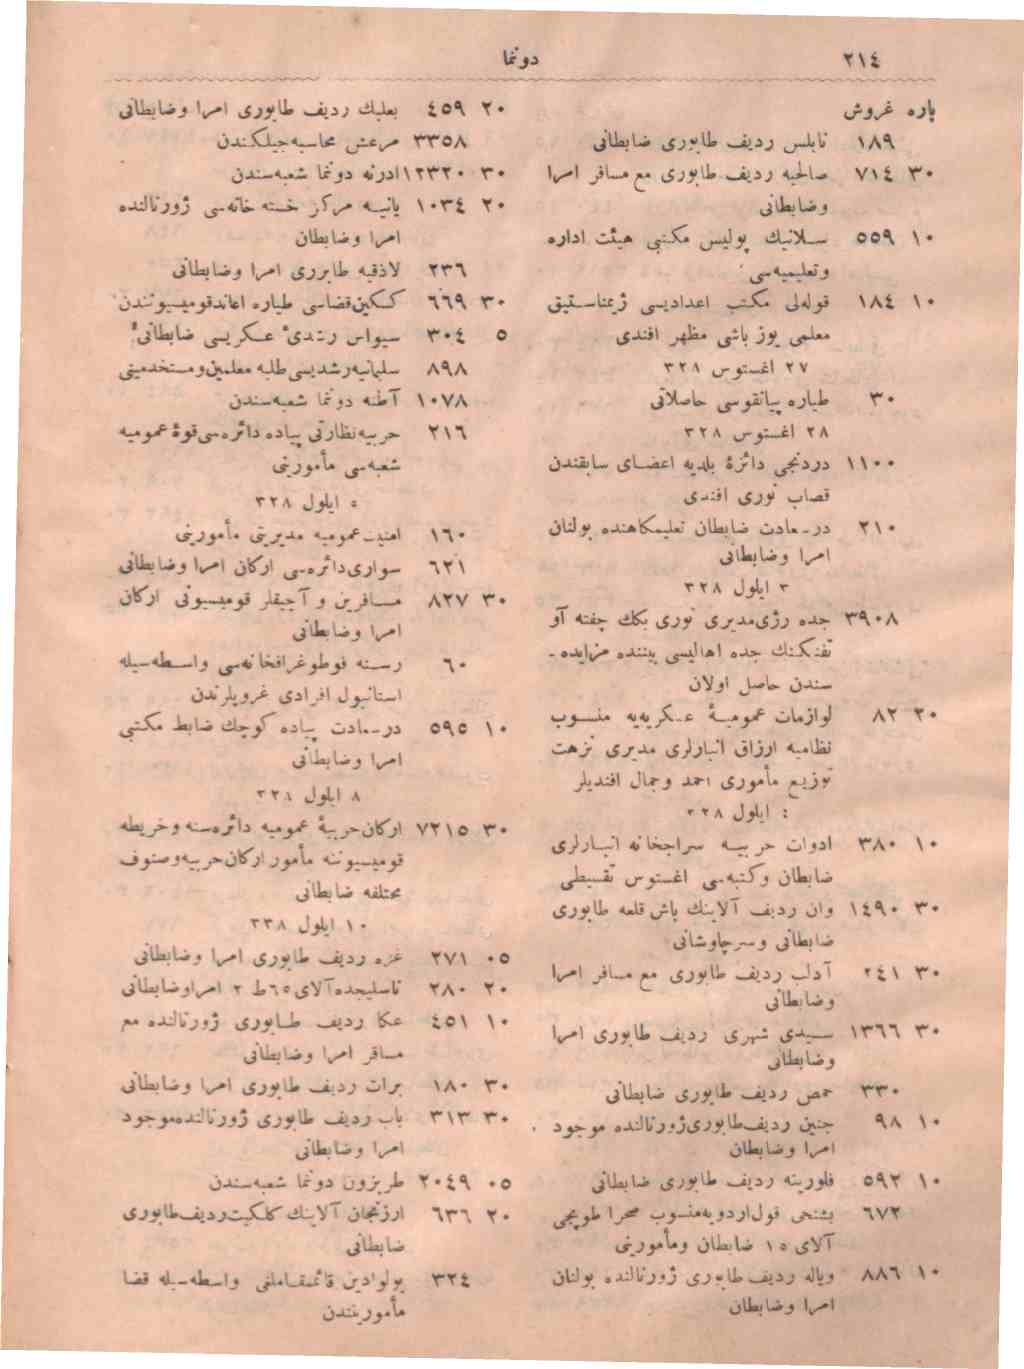 ٢١٤
دونما
پاره غروش
١٨٩ نابلس رديف طابورى ضابطانى
٣٠ ٧١٤ صالحيه رديف طابورى مع مسافر امرا
وضابطانى
١٠ ٥٥٩ سلانيك پوليس مكتبى هيئت اداره
وتعليميه‌سى
١٠ ١٨٤ قوله‌لى مكتب اعداديسى ژيمناستيق
معلمى يوز باشى مظهر افندى
٢٧ اغستوس ٣٢٨
٣٠ طياره پيانقوسى حاصلاتى
٢٨ اغستوس ٣٢٨
١١٠٠ دردنجى دائرۀ بلديه اعضاى سابقندن
قصاب نورى افندى
٢١٠ درسعادت ضابطان تعليمكاهنده بولنان
امرا وضابطانى
٣ ايلول ٣٢٨
٣٩٠٨ جده رژى‌مديرى نورى بكك چفته آو
تفنكنك جده اهاليسى بيننده مزايده‌
سندن حاصل اولان
٢٠ ٨٢ لوازمات عموميۀ عسكريه‌يه منسوب
نظاميه ارزاق انبارلرى مديرى نزهت
توزيع مأمورى احمد وجمال افنديلر
٤ ايلول ٣٢٨
١٠ ٣٨٠ ادوات حربيه سراجخانه انبارلرى
ضابطان وكتبه‌سى اغستوس تقسيطى
٣٠ ١٤٩٠ وان رديف آلاينك باش قلعه طابورى
ضابطانى وسرچاوشانى
٣٠ ٢٤١ آدلب رديف طابورى مع مسافر امرا
وضابطانى
٣٠ ١٣٦٦ سيدى شهرى رديف طابورى امرا
وضابطانى
٣٣٠ حمص رديف طابورى ضابطانى
١٠ ٩٨ جنين رديف‌طابورى‌ژورنالنده موجود
امرا وضابطان
١٠ ٥٩٢ فلورينه رديف طابورى ضابطانى
٦٧٢ بشنجى قول‌اردويه‌منسوب صحرا طوپجى
آلاى ١٥ ضابطان ومأمورينى
١٠ ٨٨٦ وياله رديف طابورى ژورنالنده بولنان
امرا وضابطان
٢٠ ٤٥٩ بعلبك رديف طابورى امرا وضابطانى
٣٣٥٨ مرعش محاسبه‌جيلكندن
٣٠ ١٢٣٢٠ ادرنه دونما شعبه‌سندن
٢٠ ١٠٣٤ يانيه مركز خسته خانه‌سى ژورنالنده
امرا وضابطان
٢٣٦ لاذقيه طابورى امرا وضابطانى
٣٠ ٦٦٩ كسكين‌قضاسى طياره اعانه‌قوميسيونندن
٥ ٣٠٤ سيواس رشدئ عسكريسى ضابطانى
٨٩٨ سليمانيه‌رشديسى‌طلبه معلمين‌ومستخدمينى
١٠٧٨ آطنه دونما شعبه‌سندن
٢١٦ حربيه‌نظارتى پياده دائره‌سى‌قوۀ عموميه
شعبه‌سى مأمورينى
٥ ايلول ٣٢٨
١٦٠ امنيت‌عموميه مديريتى مأمورينى
٦٢١ سوارى‌دائره‌سى اركان امرا وضابطانى
٣٠ ٨٢٧ مسافرين و آجيقلر قوميسيونى اركان
امرا وضابطانى
٦٠ رسنه فوطوغرافخانه‌سى واسطه‌سيله
استانبول افرادى غروپلرندن
١٠ ٥٩٥ درسعادت پياده كوچك ضابط مكتبى
امرا وضابطانى
٨ ايلول ٣٢٨
٣٠ ٧٢١٥ اركان‌حربيۀ عموميه دائره‌سنه وخريطه
قوميسيوننه مأمور اركان‌حربيه‌وصنوف
مختلفه ضابطانى
١٠ ايلول ٣٢٨
٠٥ ٢٧١ غزه رديف طابورى امرا وضابطانى
٢٠ ٢٨٠ تاسليجده‌آلاى ٦٥ط ٢ امراوضابطانى
١٠ ٤٥١ عكا رديف طابورى ژورنالنده مع
مسافر امرا وضابطانى
٣٠ ١٨٠ برات رديف طابورى امرا وضابطانى
٣٠ ٣١٣ باب رديف طابورى ژورنالنده‌موجود
امرا وضابطانى
٠٥ ٢٠٤٩ طربزون دونما شعبه‌سندن
٢٠ ٦٣٦ ارزنجان آلاينك كلكيت‌رديف‌طابورى
ضابطانى
٣٢٤ بولوادين قائمقاملغى واسطه‌سيله قضا
مأمورينندن